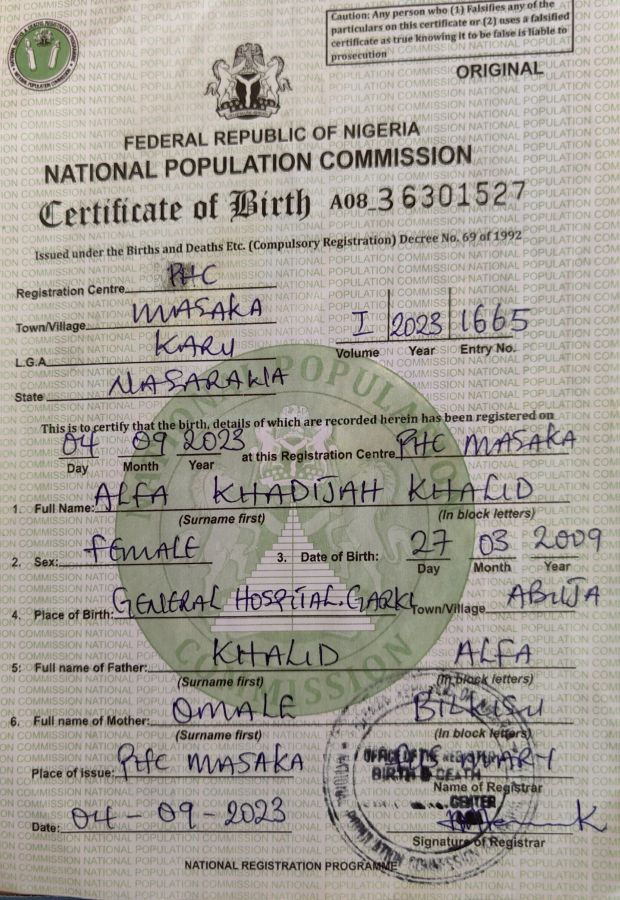 Caution: Any person who (1) Falsifies any of the
particulars on this certificate or (2) uses a falsified
certificate as true knowing it to be false is liable to
prosecution
ORIGINAL
FEDERAL REPUBLIC OF NIGERIA
NATIONAL POPULATION COMMISSION
Certificate of Birth A08_36301527
Issued under the Births and Deaths Etc. (Compulsory Registration) Decree No. 69 of 1992
Registration Centre PHC
Town/Village MASAKA
I 2023 1665
Volume Year Entry No.
L.G.A KARU
State NASARAWA
This is to certify that the birth, details of which are recorded herein has been registered on
04 09 2023 at this Registration Centre PHC MASAKA
Day Month Year
1. Full Name: ALFA KHADIJAH KHALID
(Surname first) (In block letters)
2. Sex: FEMALE 3. Date of Birth: 27 03 2009
Day Month Year
4. Place of Birth: GENERAL HOSPITAL, GARKI Town/Village ABUJA
5: Full name of Father: KHALID ALFA
(Surname first) (In block letters)
6. Full name of Mother: OMALE BILKISU
(Surname first) (In block letters)
Place of issue: PHC MASAKA MARY
Name of Registrar
BIRTH & DEATH
Date: 04-09-2023
Signature of Registrar
NATIONAL REGISTRATION PROGRAMME